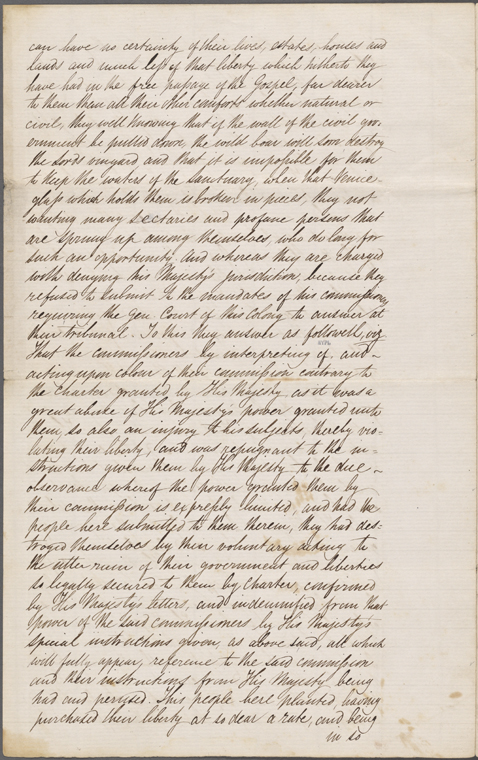 can have no certainty of their lives, estates, houses and
lands and much less of that liberty which hitherto they
have had in the free passage of the Gospel, far dearer
to them than all their other comforts whether natural or
civil, they well knowing that if the wall of the civil gov-
ernment be pulled down, the wild boar will soon destroy
the Lords vinyard and that it is impossible for them
to keep the waters of the sanctuary, when that Venice-
glass which holds them is broken in pieces, they not
wanting many Sectaries and profane persons that
are sprung up among themselves, who do long for
such an opportunity. And whereas they are charged
with denying His Majesty's jurisdiction, because they
refused to submit to the mandates of his commissioners,
requiring the Gen. Court of this Colony to answer at
their tribunal. To this they answer as followeth, viz
That the commissioners by interpreting of, and
acting upon colour of their commission contrary to
the Charter granted by His Majesty, as it was a
great abuse of His Majesty's power granted unto
them, so also an injury to his subjects, thereby vio-
lating their liberty, and was repugnant to the in-
structions given them by His Majesty to the due
observance whereof the power granted them by
their commission, is expressly limited, and had the
people here submitted to them therein, they had des-
troyed themselves by their voluntary acting to
the utter ruin of their government and liberties
so legally secured to them by Charter, confirmed
by His Majesty's letters, and indemnified from that
power of the said commissioners by His Majesty's
special instructions given, as above said, all which
will fully appear, reference to the said commission
and their instructions from His Majesty being
had and perused. This people here planted, having
purchased their liberty at so dear a rate, and being
in so